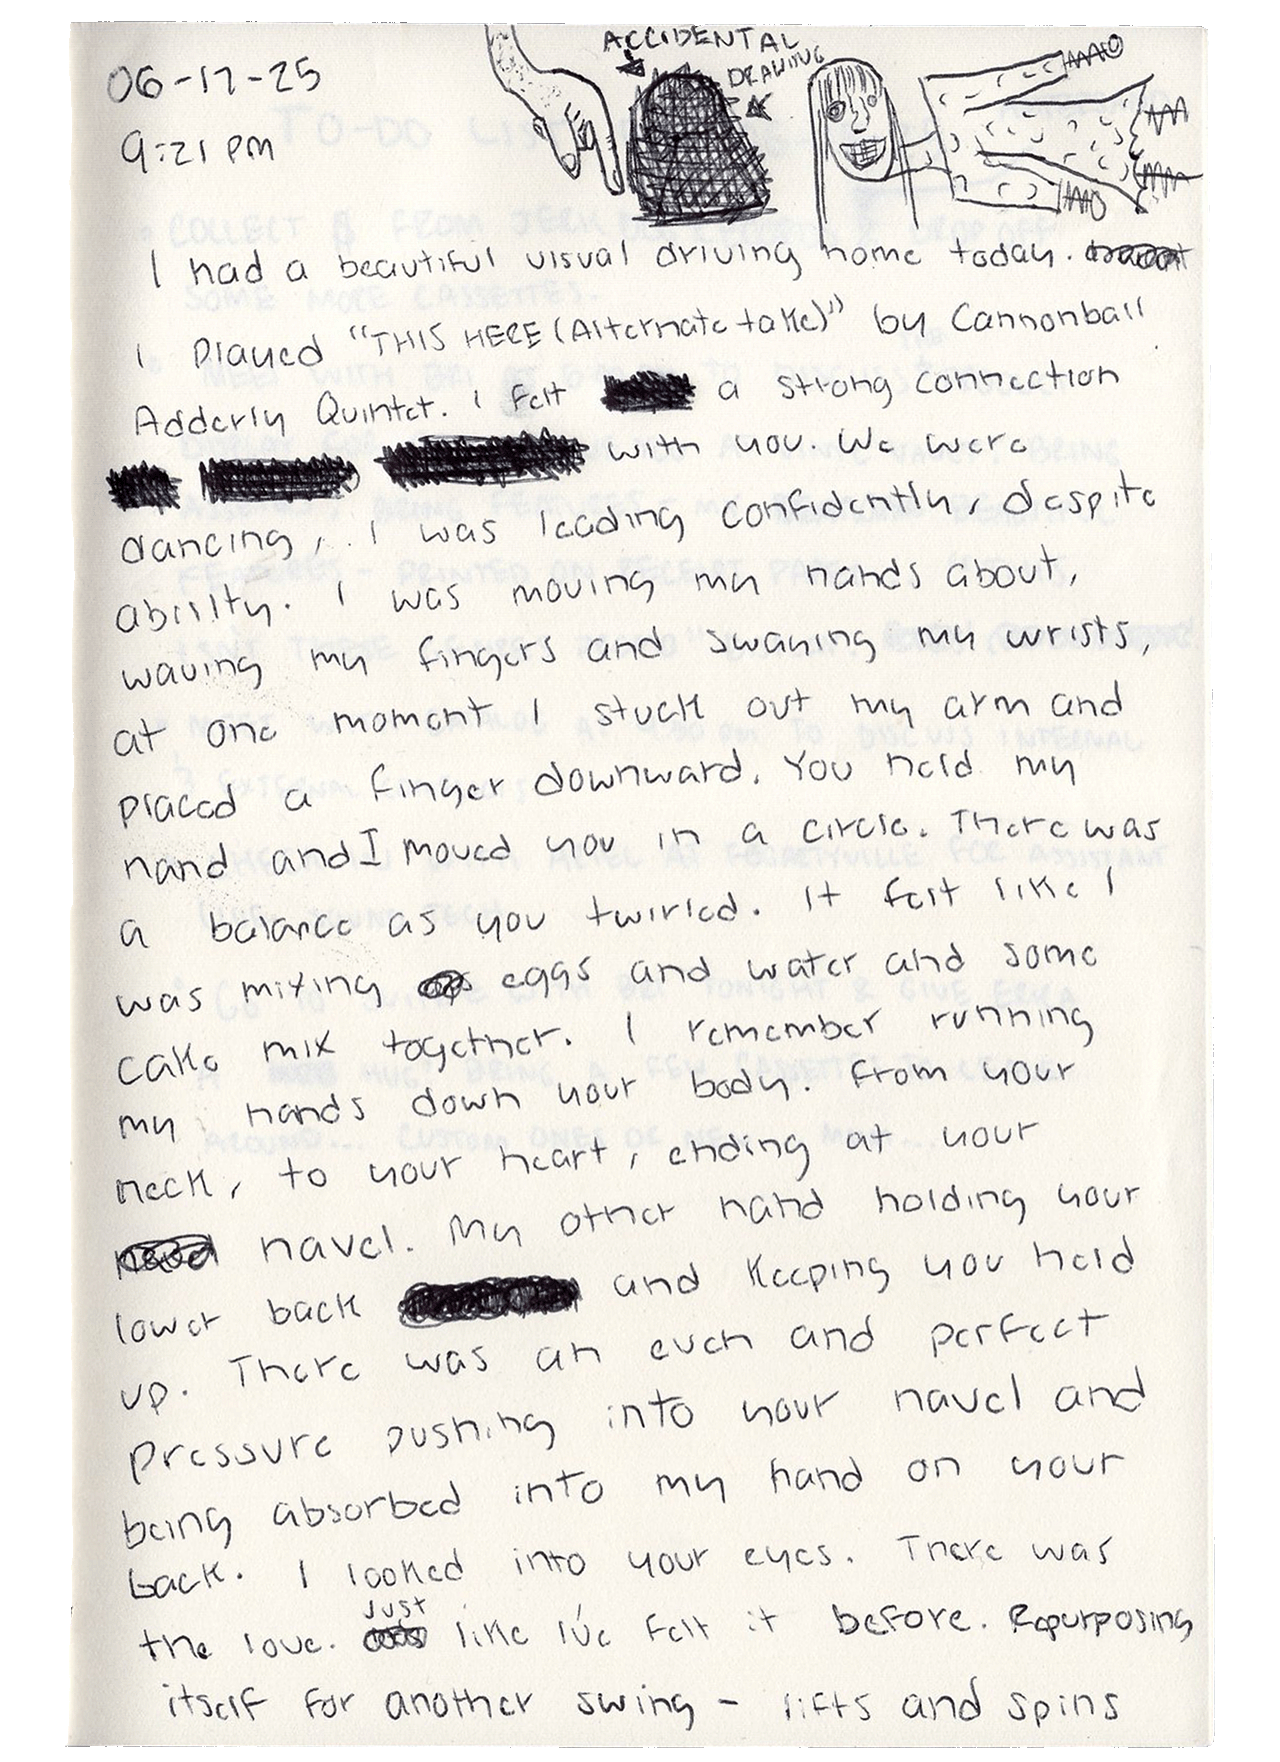 06-17-25
9:21 PM
ACCIDENTAL
DRAWING
I had a beautiful visual driving home today.
I played "THIS HERE (Alternate take)" by Cannonball
Adderly Quintet. I felt a strong connection
with you. We were
dancing, I was leading confidently, despite
ability. I was moving my hands about,
waving my fingers and swaying my wrists,
at one moment I stuck out my arm and
placed a finger downward. You held my
hand and I moved you in a circle. There was
a balance as you twirled. It felt like I
was mixing eggs and water and some
cake mix together. I remember running
my hands down your body. From your
neck, to your heart, ending at your
navel. My other hand holding your
lower back and keeping you held
up. There was an even and perfect
pressure pushing into your navel and
being absorbed into my hand on your
back. I looked into your eyes. There was
the love. just like I've felt it before. Repurposing
itself for another swing - lifts and spins